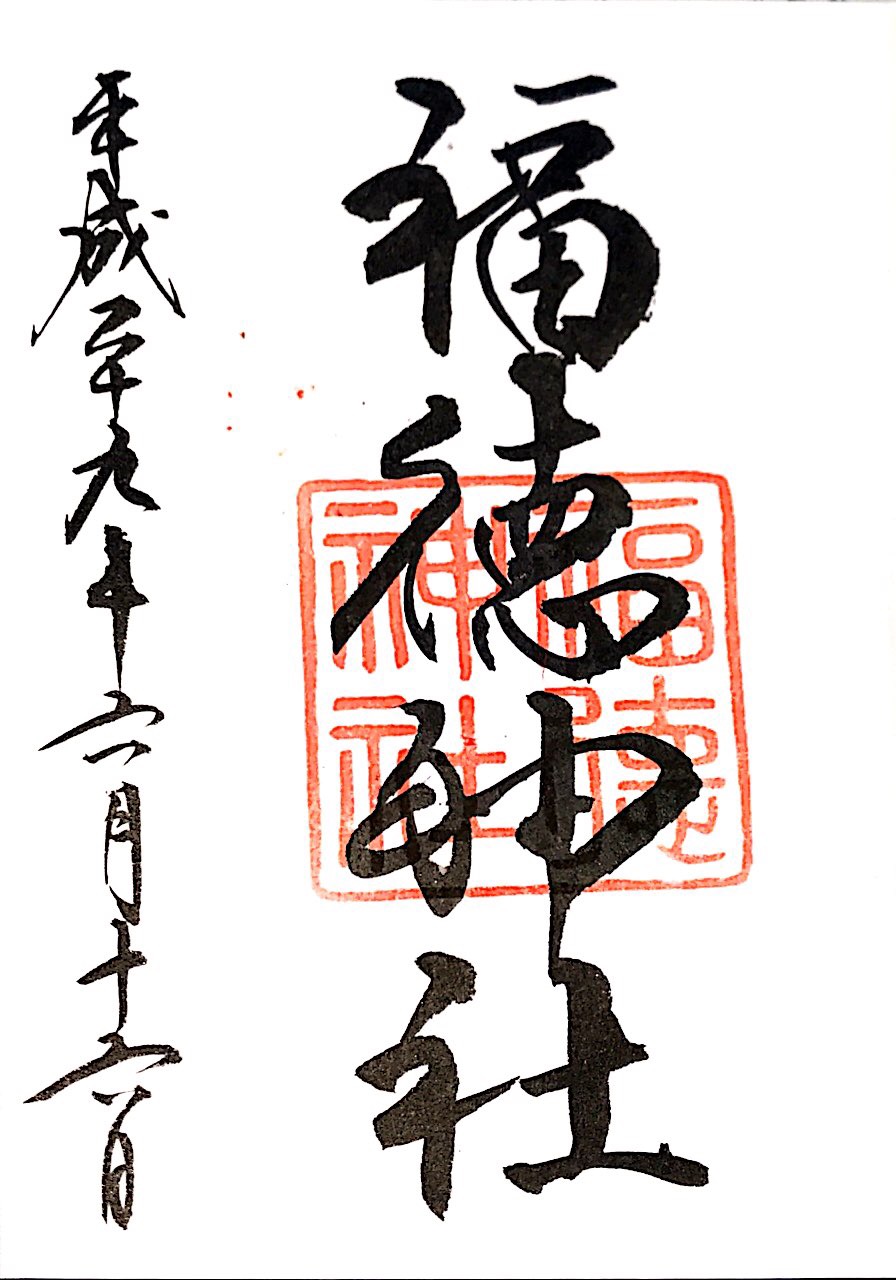 福徳神社
福徳
神社
平成二十九年六月十六日